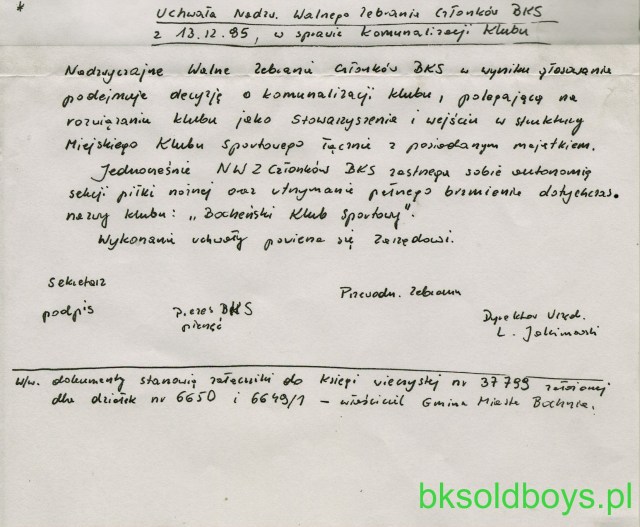 * Uchwała Nadzw. Walnego Zebrania Członków BKS
z 13.12.95, w sprawie komunalizacji klubu
Nadzwyczajne Walne Zebranie Członków BKS w wyniku głosowania
podejmuje decyzję o komunalizacji klubu, polegającą na
rozwiązaniu klubu jako Stowarzyszenie i wejściu w struktury
Miejskiego Klubu Sportowego łącznie z posiadanym majątkiem.
Jednocześnie NWZ Członków BKS zastrzega sobie autonomię
sekcji piłki nożnej oraz utrzymanie pełnego brzmienia dotychczas.
nazwy klubu: „Bocheński Klub Sportowy".
Wykonanie uchwały powierza się Zarządowi.
Sekretarz
podpis
Prezes BKS
pieczęć
Przewodn. Zebrania
Dyrektor Urzęd.
L.
W/w. dokumenty stanowią załączniki do księgi wieczystej nr 37799 założonej
dla działek nr 6650 i 6649/1 – właściciel Gmina Miasta Bochnia.
bksoldboys.pl